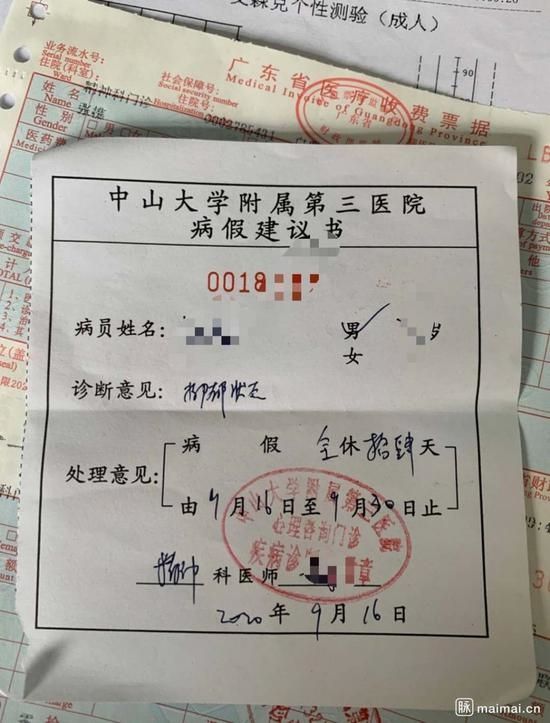 艾森克个性测验（成人）
90
广东省医疗收费票据
Medical Invoice of Guangdong Province
业务流水号：
Serial number
住院(科室)：
Ward
精神科门诊
社会保障号：
Social security number
住院号：
Hospitalization
姓名
Name
性别
Gender
男
医药费
Medical
中山大学附属第三医院
病假建议书
0018
病员姓名：
男
女
岁
诊断意见：抑郁状态
处理意见：
病假 全休拾肆天
由9月16日至9月30日止
中山大学附属第三医院
心理咨询门诊
疾病诊断
章
精神科医师
2020年9月16日
脉 maimai.cn